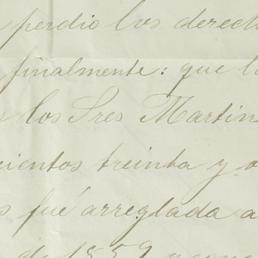 perdio los derech
finalmente: que l
los Sres Martin
cientos treinta y o
fué arreglada a
de 1852